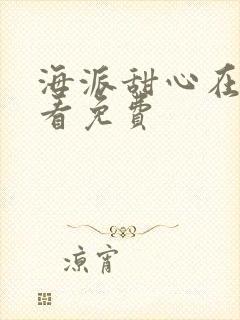 海派甜心在
看免费
凉宵